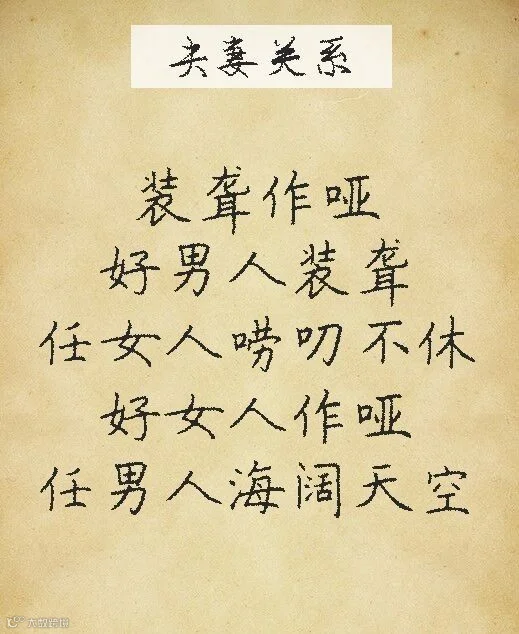 夫妻关系
装聋作哑
好男人装聋
任女人唠叨不休
好女人作哑
任男人海阔天空